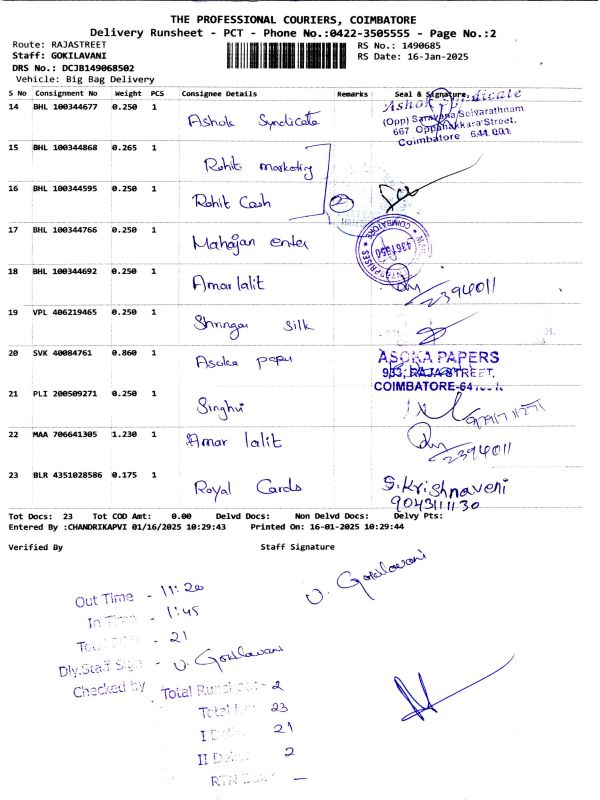 THE PROFESSIONAL COURIERS, COIMBATORE
Delivery Runsheet - PCT - Phone No.:0422-3505555 - Page No.:2
Route: RAJASTREET
Staff: GOKILAVANI
DRS No.: DCJB149068502
Vehicle: Big Bag Delivery
RS No.: 1490685
RS Date: 16-Jan-2025
S No Consignment No Weight PCS Consignee Details Remarks Seal & Signature
14 BHL 100344677 0.250 1 Ashok Syndicate
Ashok Syndicate
(Opp) Saravana Selvarathnam
667 Oppanakkara Street,
Coimbatore 641 001
15 BHL 100344868 0.265 1 Rohit marketing
16 BHL 100344595 0.250 1 Rohit Cash 2
17 BHL 100344766 0.250 1 Mahajan enter
COIMBATORE
18 BHL 100344692 0.250 1 Amar lalit 2394011
19 VPL 406219465 0.250 1 Shringar silk
20 SVK 40084761 0.860 1 Asoka
ASOKA PAPERS
933, RAJA STREET,
COIMBATORE-64
21 PLI 200509271 0.250 1 Singhvi
22 MAA 706641305 1.230 1 Amar lalit 2394011
23 BLR 4351028586 0.175 1 Royal Cards S.Krishnaveni
9043111130
Tot Docs: 23 Tot COD Amt: 0.00 Delvd Docs: Non Delvd Docs: Delvy Pts:
Entered By :CHANDRIKAPVI 01/16/2025 10:29:43 Printed On: 16-01-2025 10:29:44
Verified By Staff Signature
V. Gokilavani
Out Time - 11:20
In Time - 1:45
Total - 21
Dly.Staff Sign - V. Gokilavani
Checked by
Total - 2
Total 23
I 21
II 2
RTN -